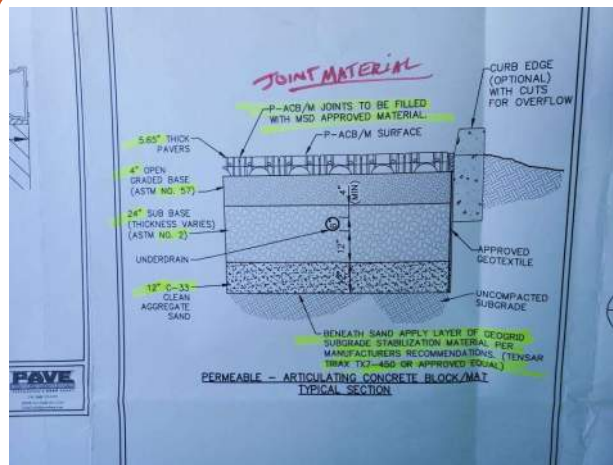 JOINT MATERIAL
P-ACB/M JOINTS TO BE FILLED
WITH MSD APPROVED MATERIAL.
P-ACB/M SURFACE
CURB EDGE
(OPTIONAL)
WITH CUTS
FOR OVERFLOW
5.65" THICK
PAVERS
4" OPEN
GRADED BASE
(ASTM NO. 57)
4"
(MIN)
24" SUB BASE
(THICKNESS VARIES)
(ASTM NO. 2)
12"
UNDERDRAIN
APPROVED
GEOTEXTILE
12" C-33
CLEAN
AGGREGATE
SAND
UNCOMPACTED
SUBGRADE
BENEATH SAND APPLY LAYER OF GEOGRID
SUBGRADE STABILIZATION MATERIAL PER
MANUFACTURERS RECOMMENDATIONS. (TENSAR
TRIAX TX7-450 OR APPROVED EQUAL)
PERMEABLE - ARTICULATING CONCRETE BLOCK/MAT
TYPICAL SECTION
PAVE